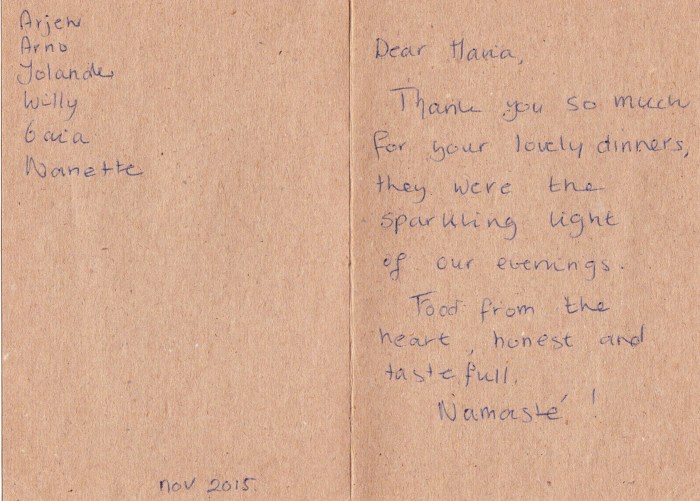 Arjen
Arno
Jolanda
Willy
Gaia
Nanette
nov 2015.
Dear Maria,
Thank you so much
for your lovely dinners,
they were the
sparkling light
of our evenings.
Food from the
heart, honest and
tastefull.
Namasté!